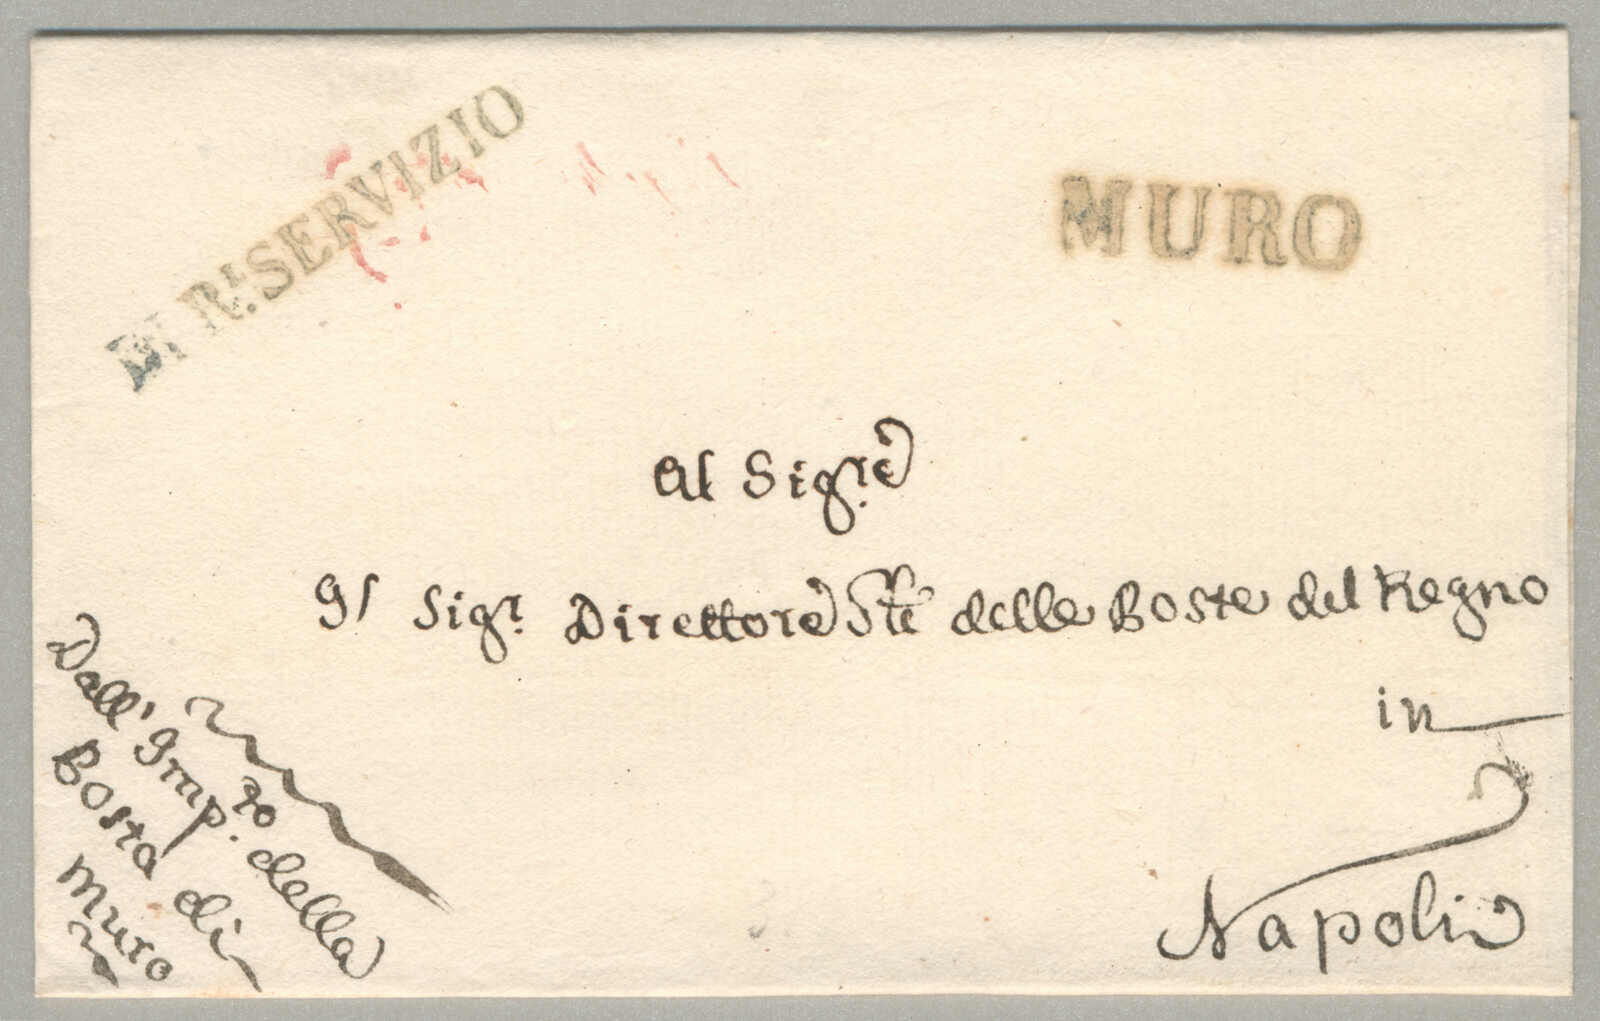 DI R.^t SERVIZIO
MURO
Al Sig.^re
Il Sig.^r Direttore delle Poste del Regno
in
Napoli
Dall' Imp.^to della
Posta di
Muro